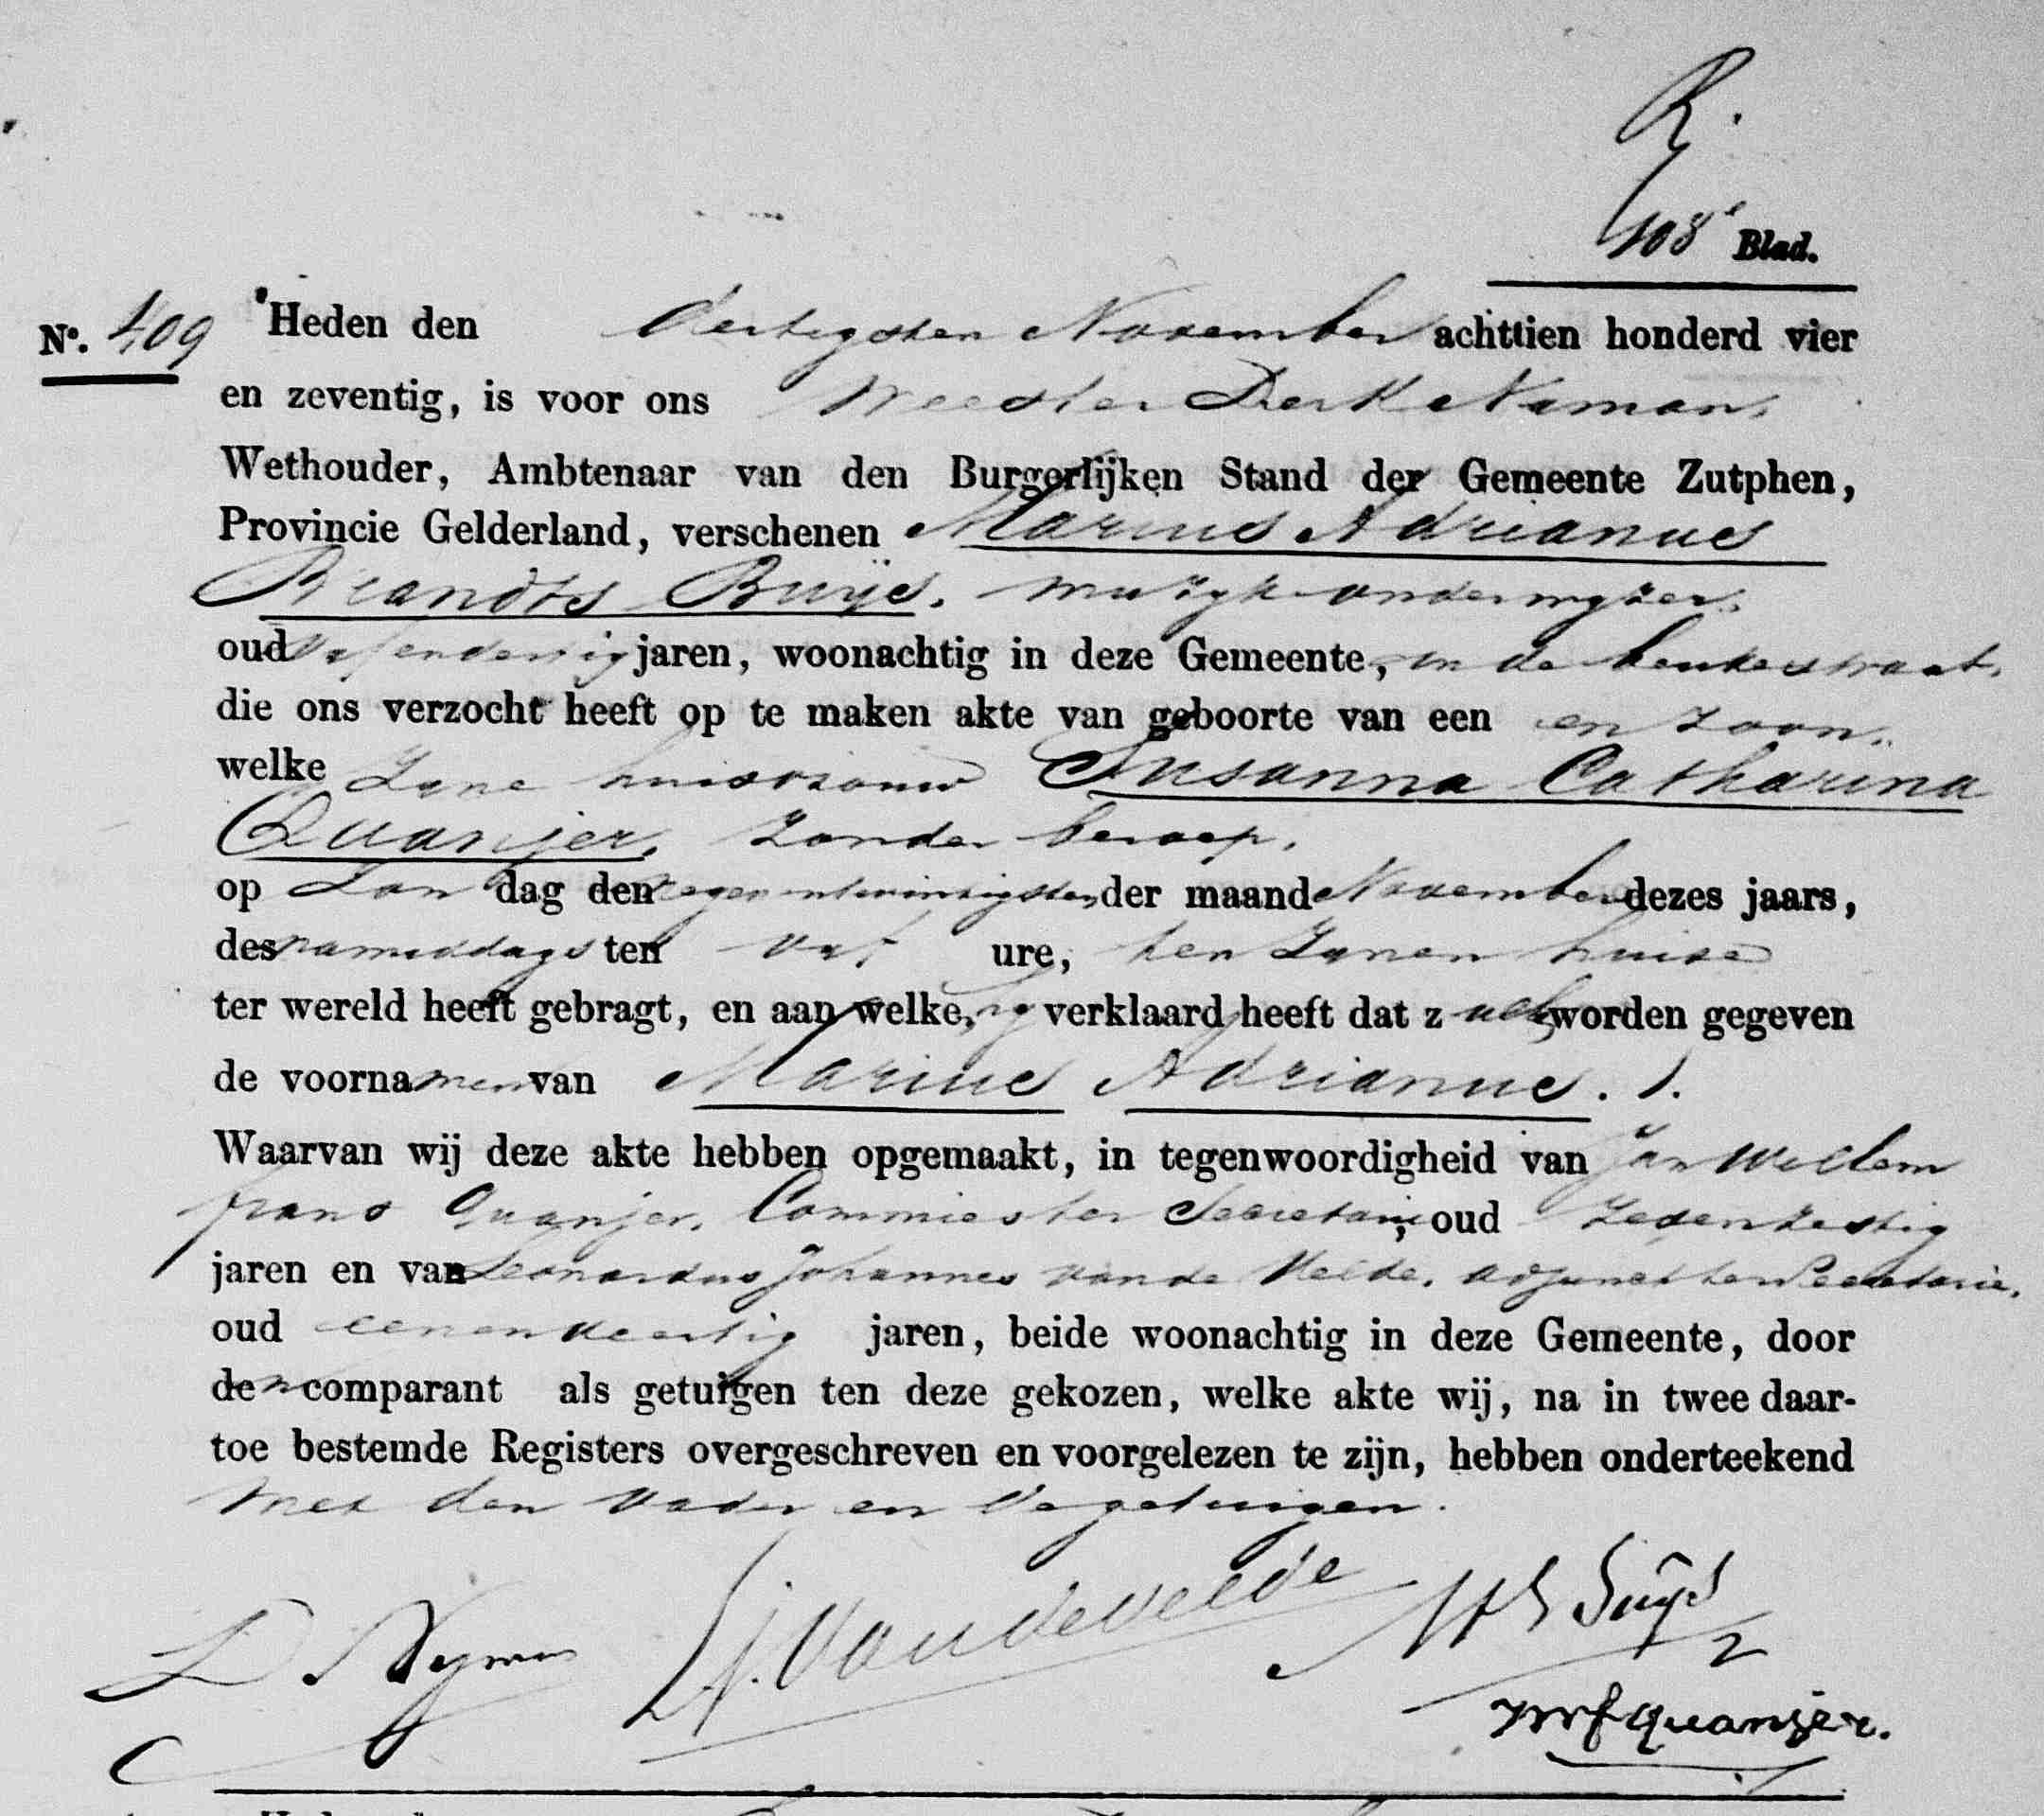 R.
108e Blad.
No. 409 Heden den dertigsten November achttien honderd vier
en zeventig, is voor ons Meester Derk Nyman,
Wethouder, Ambtenaar van den Burgerlijken Stand der Gemeente Zutphen,
Provincie Gelderland, verschenen Marius Adrianus
Brandts Buijs, muzyk onderwyzer,
oud vyfendertig jaren, woonachtig in deze Gemeente, in de beukerstraat,
die ons verzocht heeft op te maken akte van geboorte van een en zoon,
welke Zyne huisvrouw Susanna Catharina
Quanjer, zonder beroep,
op Zon dag den negenentwintigsten der maand November dezes jaars,
des namiddags ten vyf ure, ten zynen huize
ter wereld heeft gebragt, en aan welke, hy verklaard heeft dat z ullen worden gegeven
de voorna men van Marius Adrianus. /.
Waarvan wij deze akte hebben opgemaakt, in tegenwoordigheid van Jan Willem
frans Quanjer, Commies ter Secretarie, oud zesenzestig
jaren en van Leonardus Johannes van de Velde, adjunct ter Secretarie,
oud eenenveertig jaren, beide woonachtig in deze Gemeente, door
den comparant als getuigen ten deze gekozen, welke akte wij, na in twee daar-
toe bestemde Registers overgeschreven en voorgelezen te zijn, hebben onderteekend
met den vader en de getuigen.
D Nyman LJ. van de velde MAB Buijs
JWf quanjer.